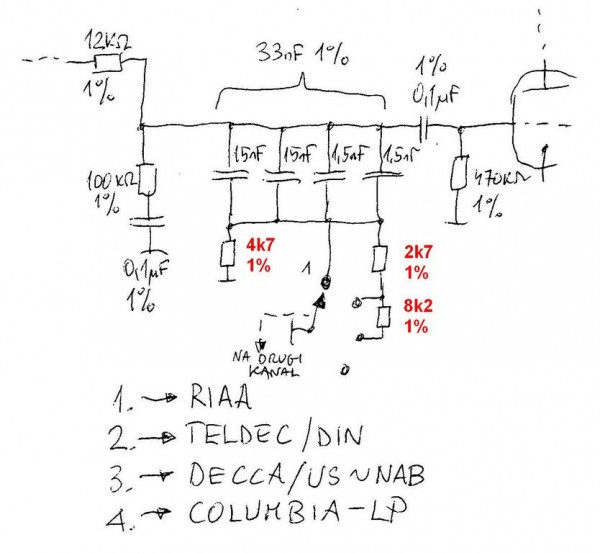 12KΩ
1%
33nF 1%
1%
0,1µF
15nF
15nF
1,5nF
1,5nF
100KΩ
1%
470KΩ
1%
0,1µF
1%
4k7
1%
1
2k7
1%
8k2
1%
NA DRUGI
KANAL
1. → RIAA
2. → TELDEC/DIN
3. → DECCA/US~NAB
4. → COLUMBIA-LP